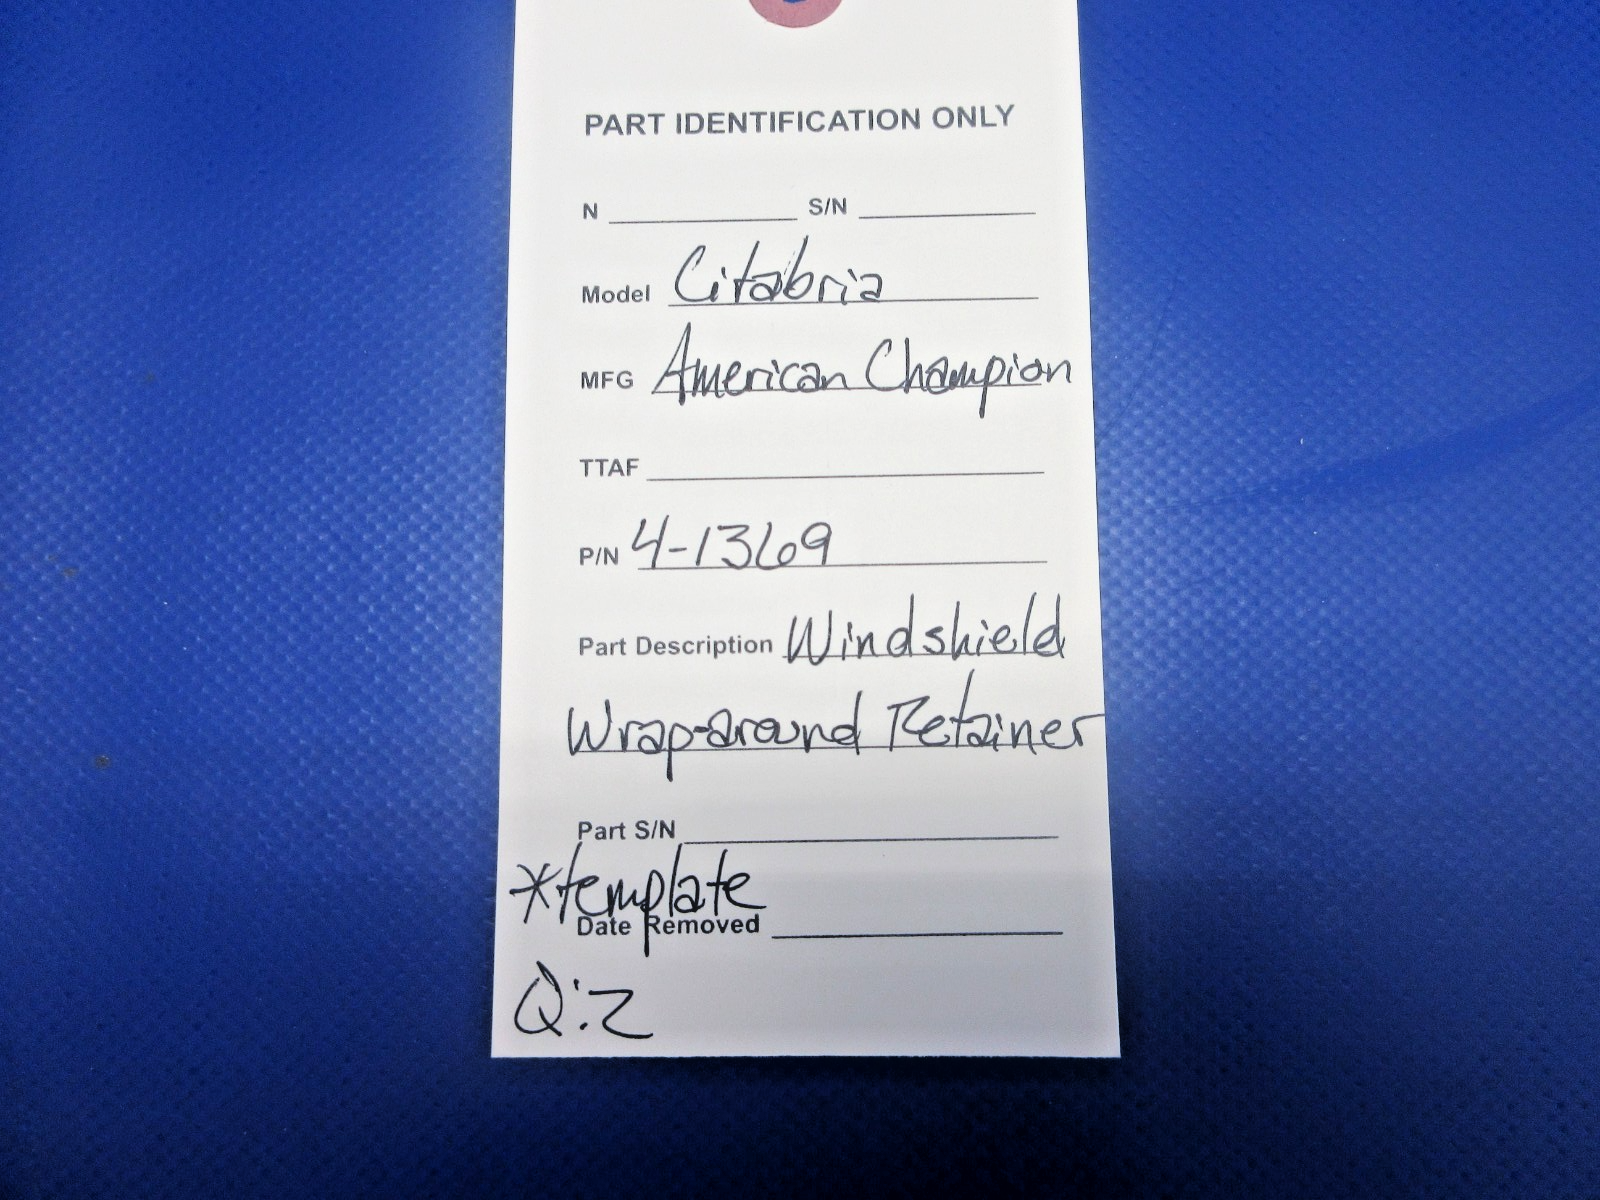 PART IDENTIFICATION ONLY
N S/N
Model Citabria
MFG American Champion
TTAF
P/N 4-1369
Part Description Windshield
Wrap-around Retainer
Part S/N
*template
Date Removed
Q:2